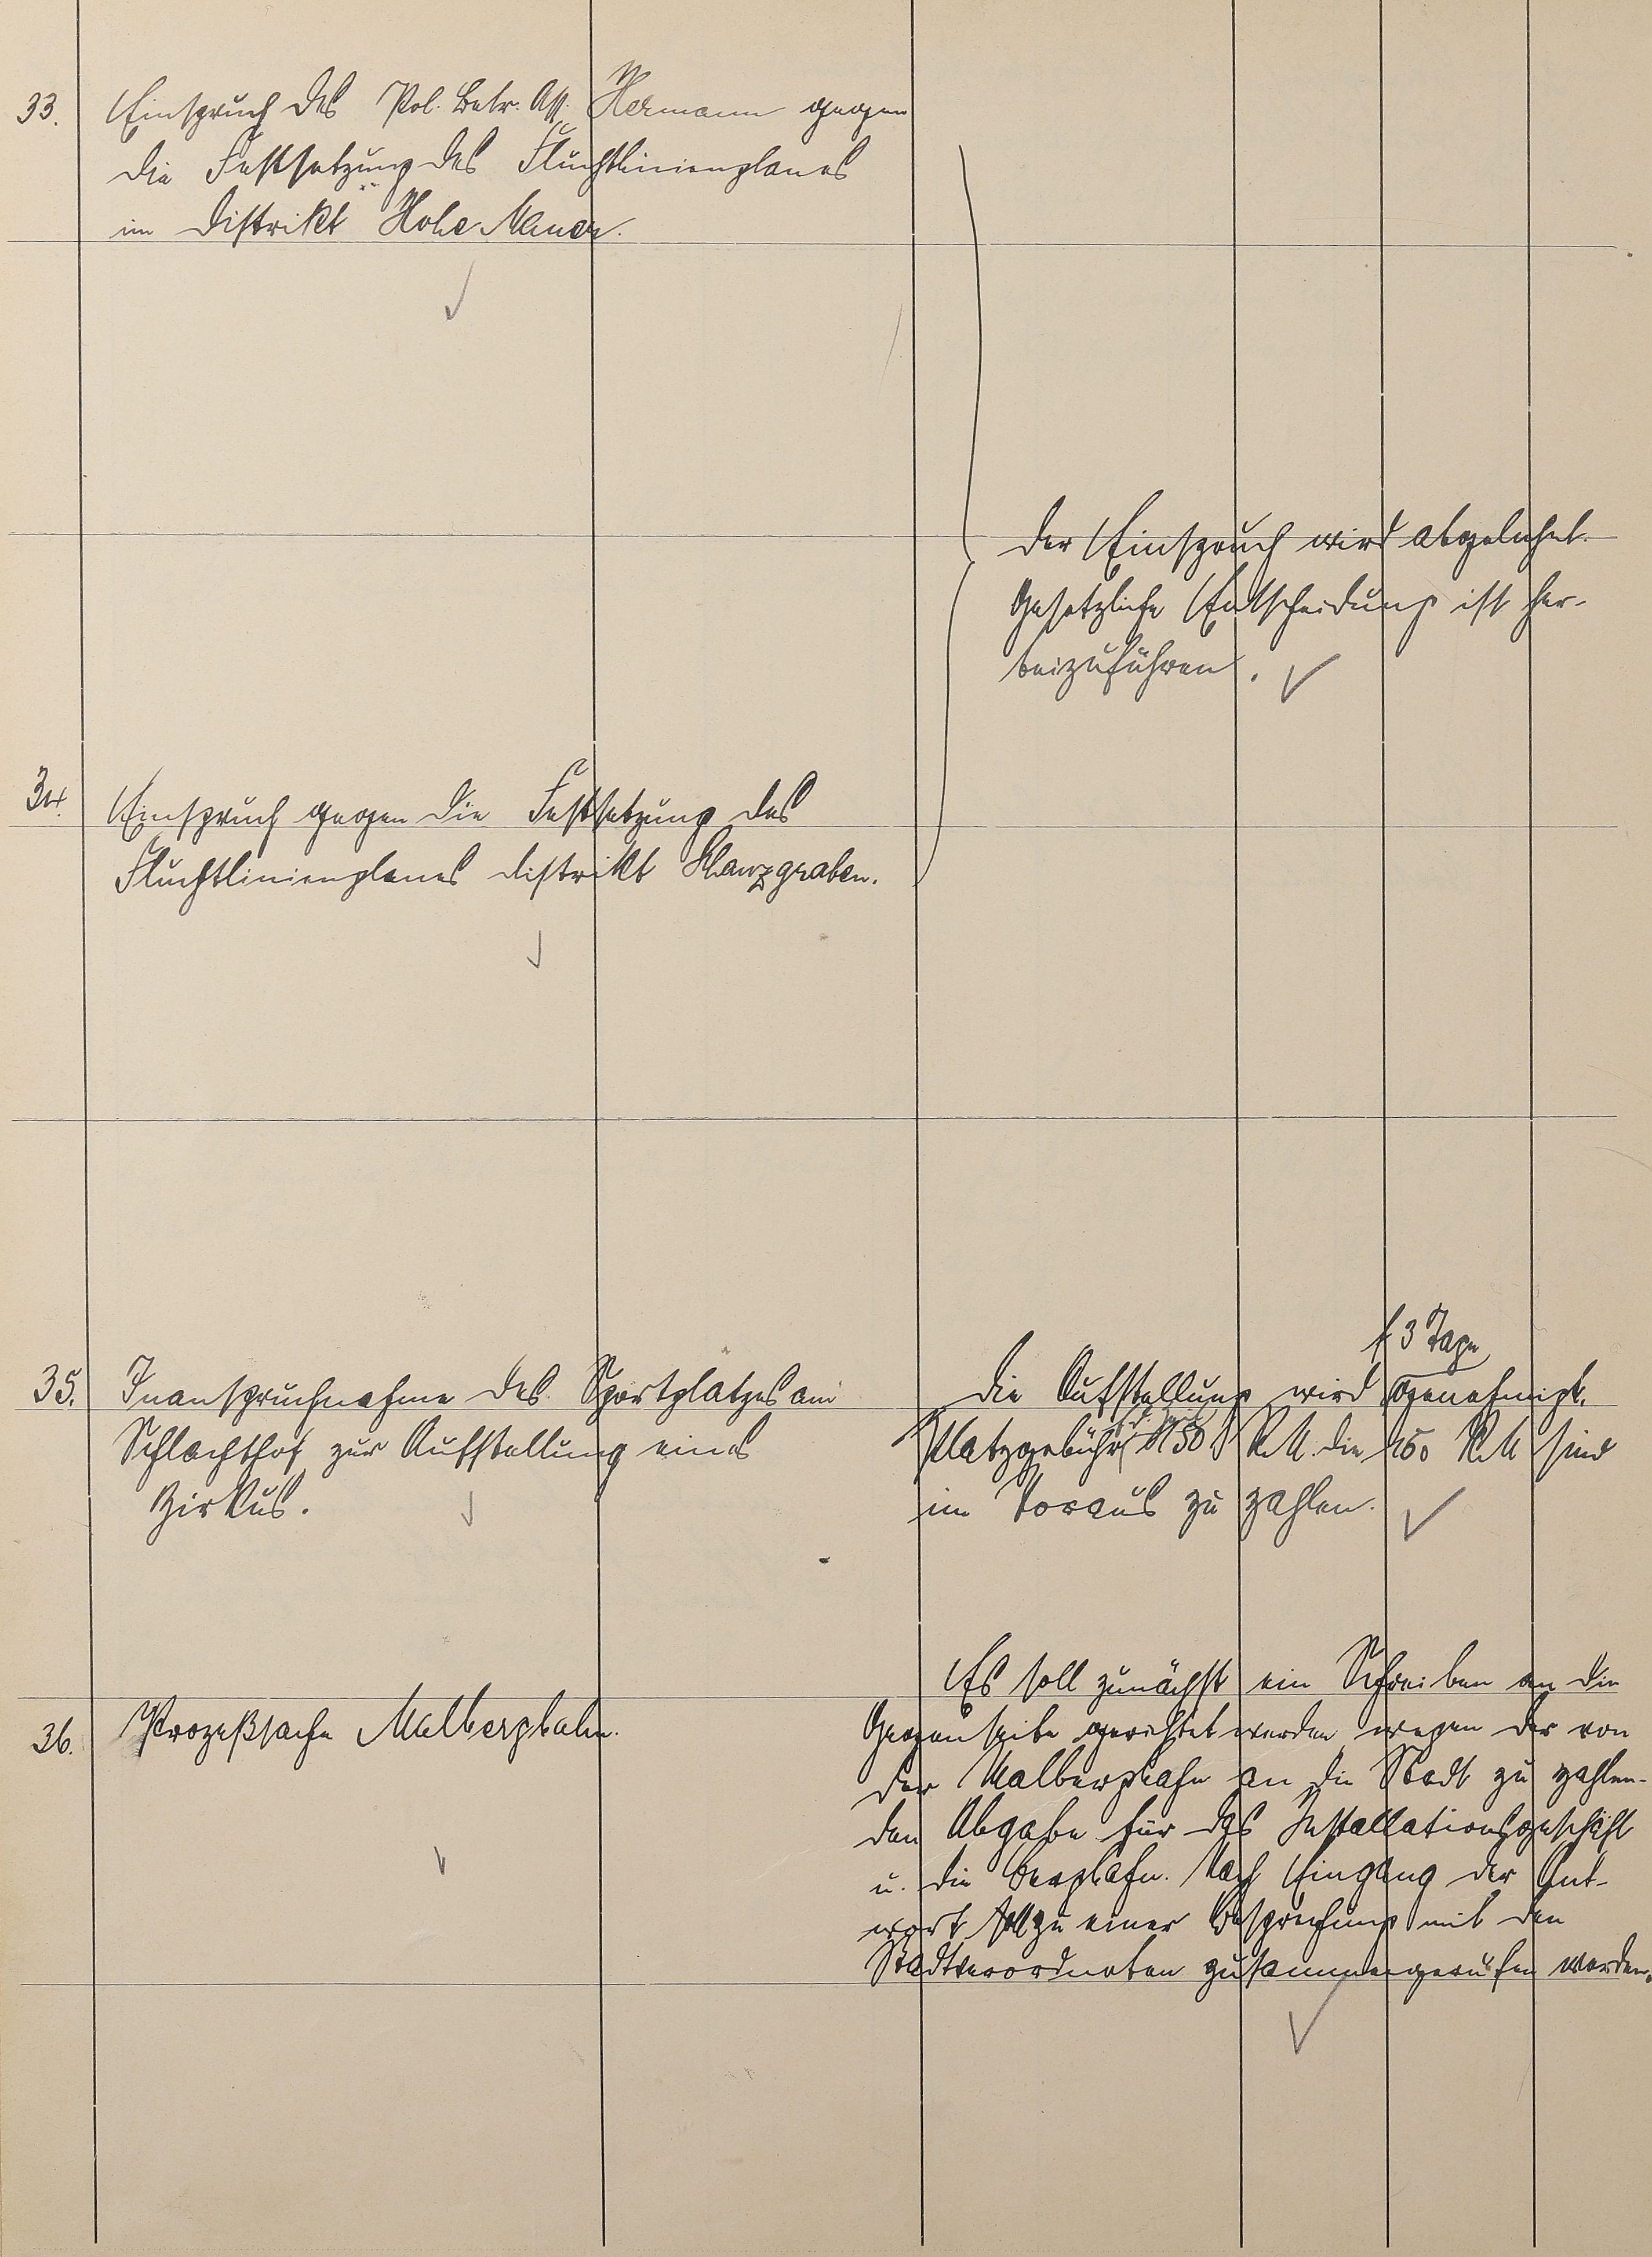 33. Einspruch des Pol. Betr. Ass. Hermann gegen
die Festsetzung des Fluchtlinienplanes
im Distrikt Hohe Mauer.
Der Einspruch wird abgelehnt.
Gesetzliche Entscheidung ist her-
beizuführen.
34. Einspruch gegen die Festsetzung des
Fluchtlinienplanes Distrikt Schanzgraben.
35. Inanspruchnahme des Sportplatzes am
Schlachthof zur Aufstellung eines
Zirkus.
f. 3 Tage
Die Aufstellung wird genehmigt.
Platzgebühr 150 RM. die 150 RM sind
im Voraus zu zahlen.
36. Prozeßsache Malbergbahn.
Es soll zunächst ein Schreiben an die
Gegenseite gerichtet werden wegen der von
der Malbergbahn an die Stadt zu zahlen-
den Abgabe für das Installationsgeschäft
u. die Bergbahn. Nach Eingang der Ant-
wort soll zu einer Besprechung mit den
Stadtverordneten zusammengerufen werden.